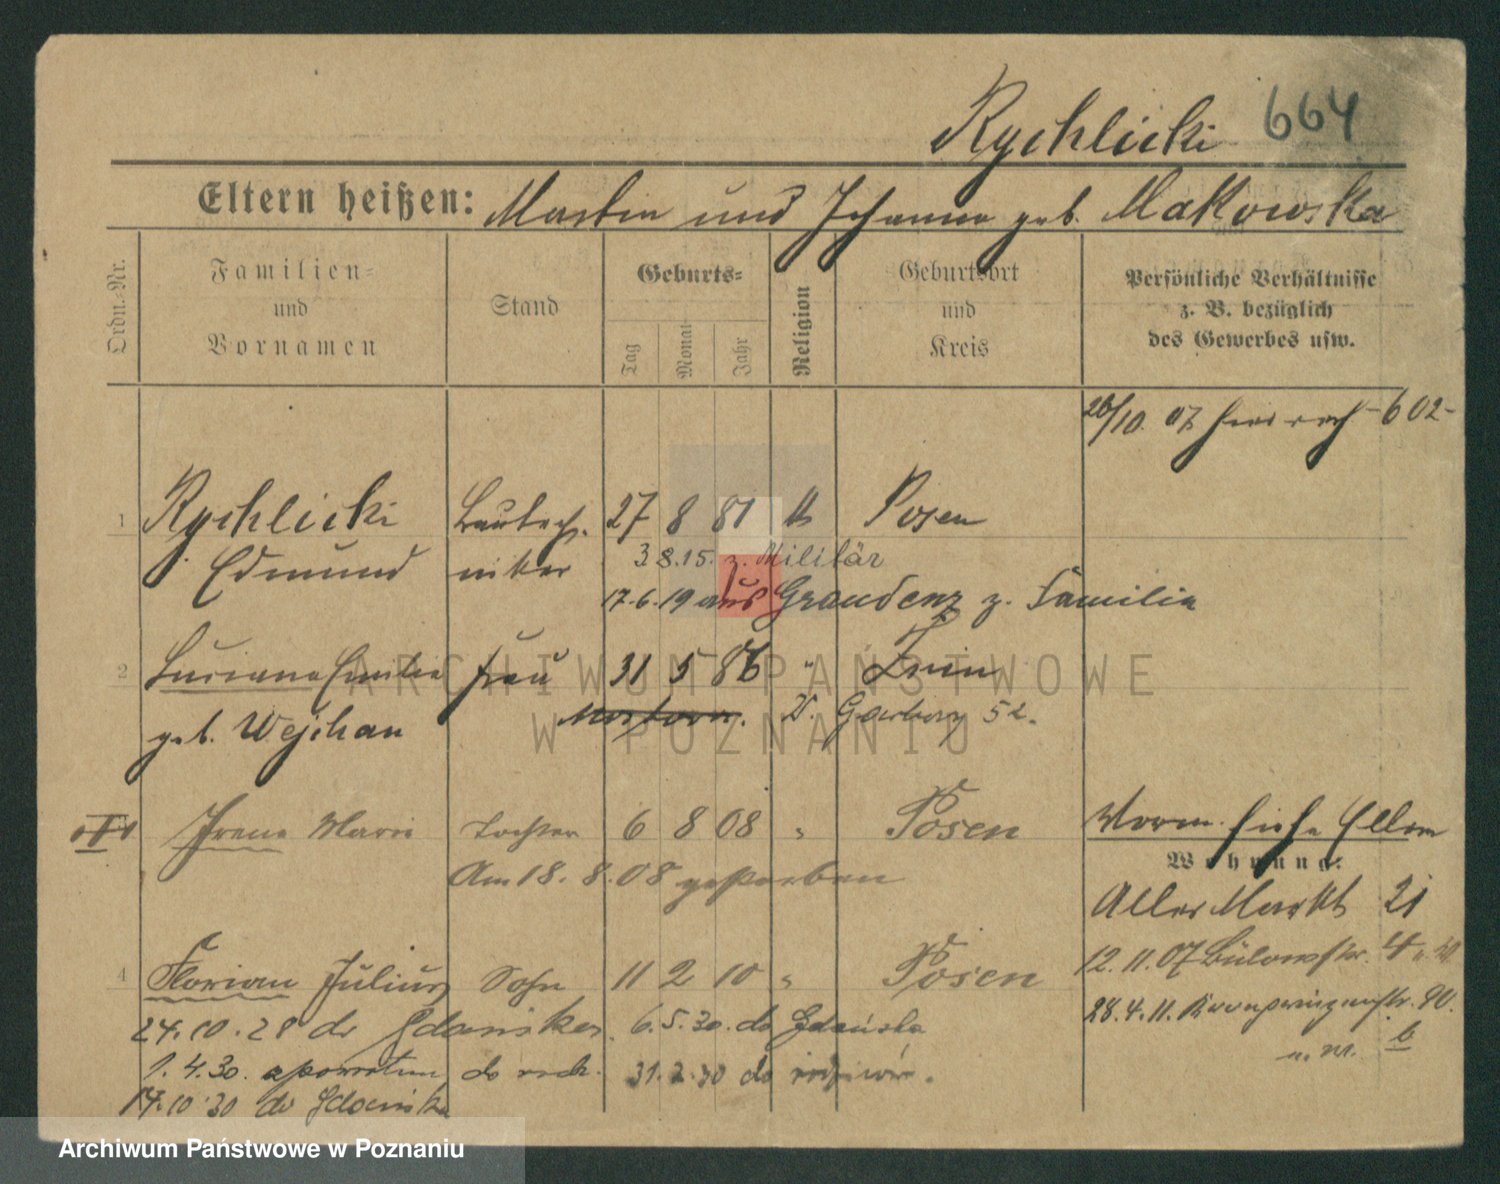 Rychlicki 664
Eltern heißen: Martin und Johanna geb. Makowska
Ordn.-Nr.
Familien- und Vornamen
Stand
Geburts-
Tag
Monat
Jahr
Religion
Geburtsort und Kreis
Persönliche Verhältnisse z. B. bezüglich des Gewerbes usw.
26/10. 07 -602-
1 Rychlicki Bautech- 27 8 81 Posen
Edmund niker 3.8.15. z. Militär
17.6.19 aus Graudenz z. Familie
2 Luciana Emilie Frau 31 5 86 " Znin
geb. Wejchan Garbary 52.
Irene Marie Tochter 6 8 08 " Posen
Am 18. 8. 08 gestorben
Vorm. siehe Eltern
Wohnung:
Alter Markt 21
12.11.07 Bülowstr. 4
28.4.11. Kronprinzenstr. 90.
b
4 Florian Julius Sohn 11 2 10 " Posen
24.10.28 do Gdańska 6.5.30. do Gdańska
1.4.30. z powrotem do rodz. 31.7.30 do rodziców.
14.10.30 do Gdańska
ARCHIWUM PAŃSTWOWE
W POZNANIU
Archiwum Państwowe w Poznaniu